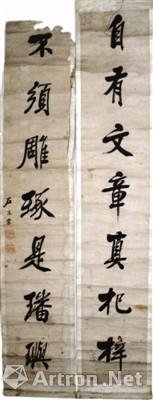 自有文章真杞梓
不须雕琢是璠玙
Artron.Net